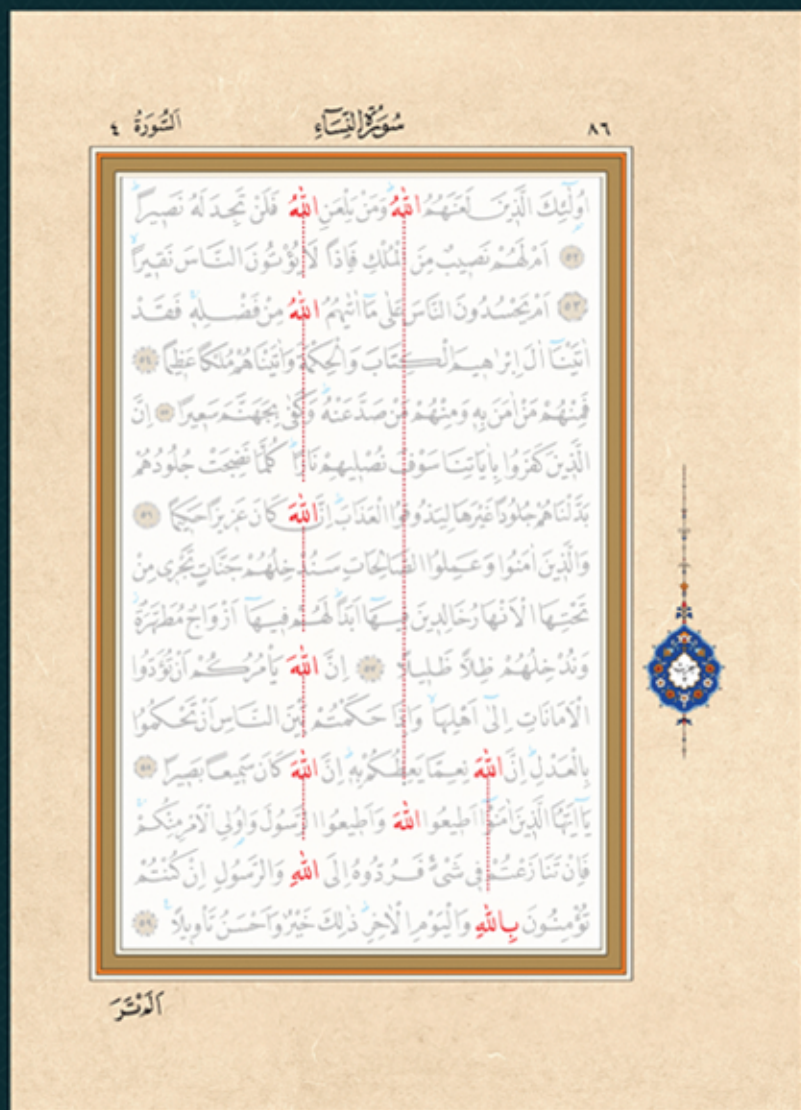 ٨٦ سُورَةُ النِّسَاءِ اَلسُّورَةُ ٤
اُو۬لٰٓئِكَ الَّذ۪ينَ لَعَنَهُمُ اللّٰهُۜ وَمَنْ يَلْعَنِ اللّٰهُ فَلَنْ تَجِدَ لَهُ نَص۪يراًۜ
﴿٥٢﴾ اَمْ لَهُمْ نَص۪يبٌ مِنَ الْمُلْكِ فَاِذاً لَا يُؤْتُونَ النَّاسَ نَق۪يراًۙ
﴿٥٣﴾ اَمْ يَحْسُدُونَ النَّاسَ عَلٰى مَٓا اٰتٰيهُمُ اللّٰهُ مِنْ فَضْلِه۪ۚ فَقَدْ
اٰتَيْنَٓا اٰلَ اِبْرٰه۪يمَ الْكِتَابَ وَالْحِكْمَةَ وَاٰتَيْنَاهُمْ مُلْكاً عَظ۪يماً ﴿٥٤﴾
فَمِنْهُمْ مَنْ اٰمَنَ بِه۪ وَمِنْهُمْ مَنْ صَدَّ عَنْهُۜ وَكَفٰى بِجَهَنَّمَ سَع۪يراً ﴿٥٥﴾ اِنَّ
الَّذ۪ينَ كَفَرُوا بِاٰيَاتِنَا سَوْفَ نُصْل۪يهِمْ نَاراًۜ كُلَّمَا نَضِجَتْ جُلُودُهُمْ
بَدَّلْنَاهُمْ جُلُوداً غَيْرَهَا لِيَذُوقُوا الْعَذَابَۜ اِنَّ اللّٰهَ كَانَ عَز۪يزاً حَك۪يماً ﴿٥٦﴾
وَالَّذ۪ينَ اٰمَنُوا وَعَمِلُوا الصَّالِحَاتِ سَنُدْخِلُهُمْ جَنَّاتٍ تَجْر۪ي مِنْ
تَحْتِهَا الْاَنْهَارُ خَالِد۪ينَ ف۪يهَٓا اَبَداًۜ لَهُمْ ف۪يهَٓا اَزْوَاجٌ مُطَهَّرَةٌۘ
وَنُدْخِلُهُمْ ظِلاًّ ظَل۪يلاً ﴿٥٧﴾ اِنَّ اللّٰهَ يَأْمُرُكُمْ اَنْ تُؤَدُّوا
الْاَمَانَاتِ اِلٰٓى اَهْلِهَاۙ وَاِذَا حَكَمْتُمْ بَيْنَ النَّاسِ اَنْ تَحْكُمُوا
بِالْعَدْلِۜ اِنَّ اللّٰهَ نِعِمَّا يَعِظُكُمْ بِه۪ۜ اِنَّ اللّٰهَ كَانَ سَم۪يعاً بَص۪يراً ﴿٥٨﴾
يَٓا اَيُّهَا الَّذ۪ينَ اٰمَنُٓوا اَط۪يعُوا اللّٰهَ وَاَط۪يعُوا الرَّسُولَ وَاُو۬لِي الْاَمْرِ مِنْكُمْۚ
فَاِنْ تَنَازَعْتُمْ ف۪ي شَيْءٍ فَرُدُّوهُ اِلَى اللّٰهِ وَالرَّسُولِ اِنْ كُنْتُمْ
تُؤْمِنُونَ بِاللّٰهِ وَالْيَوْمِ الْاٰخِرِۜ ذٰلِكَ خَيْرٌ وَاَحْسَنُ تَأْو۪يلاً۟ ﴿٥٩﴾
اَلَمْ تَرَ